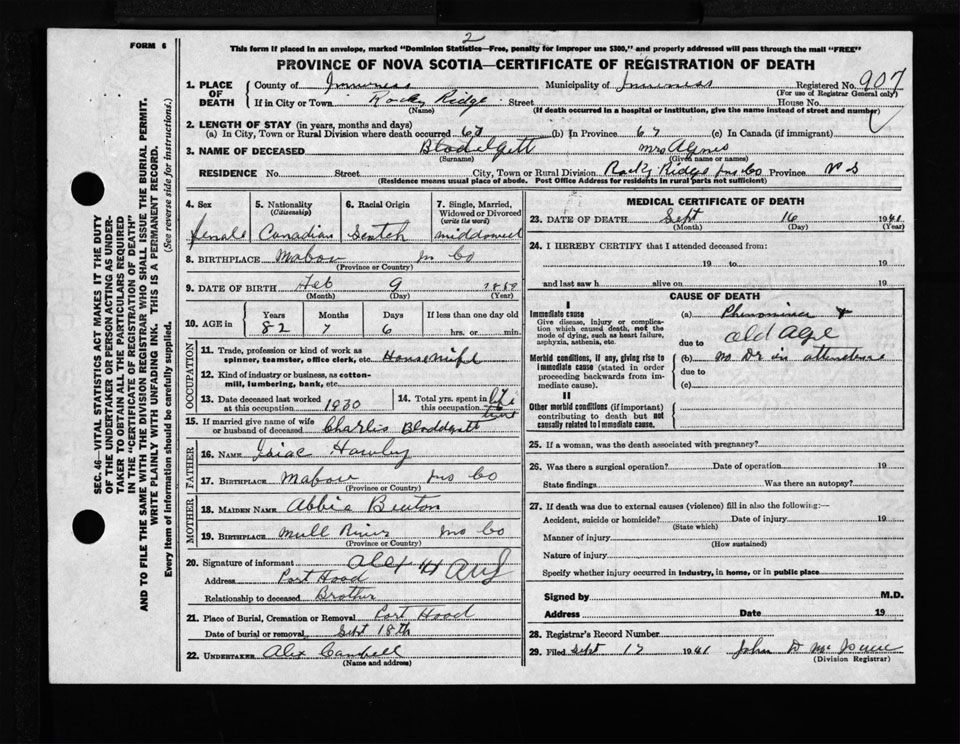 2
FORM 6
This form if placed in an envelope, marked "Dominion Statistics—Free, penalty for improper use $300," and properly addressed will pass through the mail "FREE"
PROVINCE OF NOVA SCOTIA—CERTIFICATE OF REGISTRATION OF DEATH
1. PLACE OF DEATH
County of Inverness Municipality of Inverness Registered No. 907
(For use of Registrar General only)
If in City or Town Rocky Ridge Street House No.
(Name) (If death occurred in a hospital or institution, give the name instead of street and number)
2. LENGTH OF STAY (in years, months and days)
(a) In City, Town or Rural Division where death occurred 67 (b) In Province 67 (c) In Canada (if immigrant)
3. NAME OF DECEASED Blodelgett Mrs Agnes
(Surname) (Given name or names)
RESIDENCE No. Street City, Town or Rural Division Rocky Ridge Inv Co Province N S
(Residence means usual place of abode. Post Office Address for residents in rural parts not sufficient)
4. Sex
female
5. Nationality
(Citizenship)
Canadian
6. Racial Origin
Scotch
7. Single, Married, Widowed or Divorced
(write the word)
widdowed
8. BIRTHPLACE Mabou Inv Co
(Province or Country)
9. DATE OF BIRTH Feb 9 1859
(Month) (Day) (Year)
10. AGE in Years Months Days If less than one day old
82 7 6 hrs. or min.
OCCUPATION
11. Trade, profession or kind of work as spinner, teamster, office clerk, etc. Housewife
12. Kind of industry or business, as cotton-mill, lumbering, bank, etc.
13. Date deceased last worked at this occupation 1930
14. Total yrs. spent in this occupation life time
15. If married give name of wife or husband of deceased Charlis Bloddgett
FATHER
16. NAME Isiac Hawley
17. BIRTHPLACE Mabou Inv Co
(Province or Country)
MOTHER
18. MAIDEN NAME Abbie Beuton
19. BIRTHPLACE Mull River Inv Co
(Province or Country)
20. Signature of informant Alex H
Address Port Hood
Relationship to deceased Brother
21. Place of Burial, Cremation or Removal Port Hood
Date of burial or removal Sept 18th
22. UNDERTAKER Alex Cambell
(Name and address)
MEDICAL CERTIFICATE OF DEATH
23. DATE OF DEATH Sept 16 1941
(Month) (Day) (Year)
24. I HEREBY CERTIFY that I attended deceased from:
19 to 19
and last saw h alive on 19
CAUSE OF DEATH
I
Immediate cause
Give disease, injury or complication which caused death, not the mode of dying, such as heart failure, asphyxia, asthenia, etc.
(a) Phenominia &
due to old Age
Morbid conditions, if any, giving rise to immediate cause (stated in order proceeding backwards from immediate cause).
(b) no Dr in attendence
due to
(c)
II
Other morbid conditions (if important) contributing to death but not causally related to immediate cause.
25. If a woman, was the death associated with pregnancy?
26. Was there a surgical operation? Date of operation 19
State findings Was there an autopsy?
27. If death was due to external causes (violence) fill in also the following:—
Accident, suicide or homicide? Date of injury 19
(State which)
Manner of injury
(How sustained)
Nature of injury
Specify whether injury occurred in industry, in home, or in public place
Signed by M.D.
Address Date 19
28. Registrar's Record Number
29. Filed Sept 17 1941 John D
(Division Registrar)
SEC. 46—VITAL STATISTICS ACT MAKES IT THE DUTY
OF THE UNDERTAKER OR PERSON ACTING AS UNDER-
TAKER TO OBTAIN ALL THE PARTICULARS REQUIRED
IN THE "CERTIFICATE OF REGISTRATION OF DEATH"
AND TO FILE THE SAME WITH THE DIVISION REGISTRAR WHO SHALL ISSUE THE BURIAL PERMIT.
WRITE PLAINLY WITH UNFADING INK. THIS IS A PERMANENT RECORD.
Every item of Information should be carefully supplied. (See reverse side for instructions.)